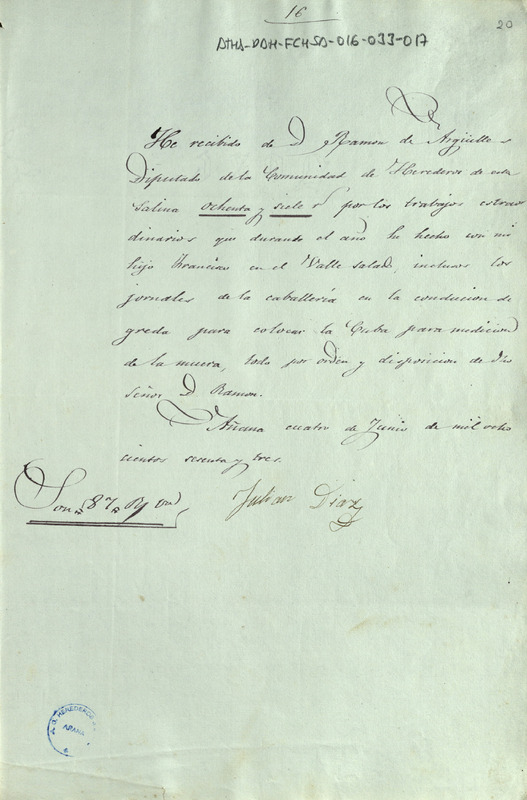 16
20
ATHA-DAH-FCHSA-016-033-017
He recibido de D Ramon de Argüelles
Diputado de la Comunidad de Herederos de esta
Salina ochenta y siete r por los trabajos estraor
dinarios que durante el año he hecho con mi
hijo Francisco en el Valle salado, inclusos los
jornales de la caballería en la conducion de
greda para colocar la Cuba para medicion
de la muera, todo por orden y disposicion de dho
Señor D Ramon.
Añana cuatro de Junio de mil ocho
cientos sesenta y tres.
Son 87 Rs von
Julian Diaz
HEREDEROS
AÑANA